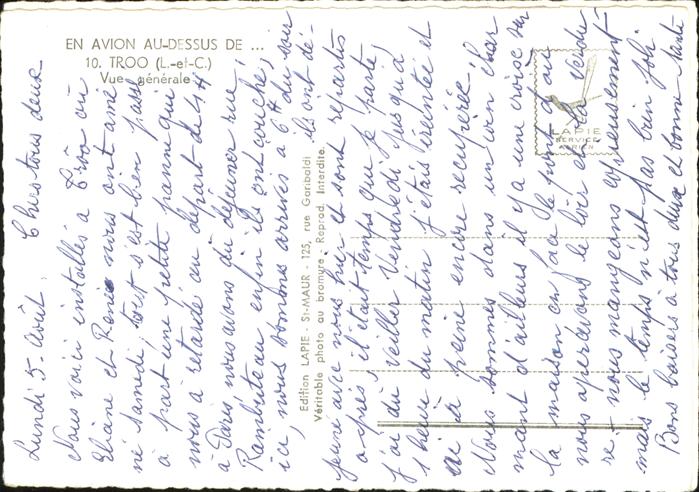 EN AVION AU-DESSUS DE ...
10. TROO (L.-et-C.)
Vue générale
LAPIE
SERVICE
AÉRIEN
Edition LAPIE St-MAUR - 125, rue Garibaldi
Véritable photo au bromure - Reprod. Interdite.
Lundi 5 août. Chers tous deux
Nous voici installés à Troo où
Eliane et René nous ont ame
né samedi tout s'est bien passé
à part une petite panne qui
nous a retardé au départ de 4H
à Paris nous avons du déjeuner rue
Rambuteau enfin ils ont couché
ici, nous sommes arrivés à 6H du soir
ils ont dé-
jeuné avec nous hier et sont repartis
après, il était temps que je parte
j'ai du veiller Vendredi jusqu'à
1 heure du matin j'étais éreintée et
ai à peine encore récupérée.
Nous sommes dans un coin char
mant d'ailleurs il y a une croix sur
la maison en face le point d'où
nous apercevons le loir et la verdu
re - nous mangeons copieusement
mais le temps n'est pas bien joli
Bons baisers à tous deux et bonne santé